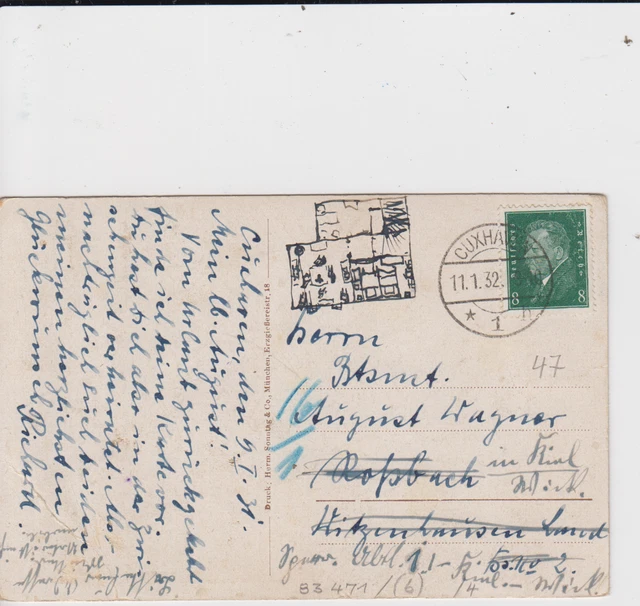 Cuxhaven, den 9. I. 31.
Mein lb. August!
Vom Urlaub zurückgekehrt
finde ich Deine Karte vor.
Du hast Dich also in der Zwi-
schenzeit verheiratet. Al-
nachträglich euch beiden
meinen herzlichsten
Glückwunsch Richard.
Druck: Herm. Sonntag & Co., München, Erzgießereistr. 18
CUXHAVEN
11.1.32.
* 1 n
Deutsches Reich
8 8
47
Herrn
Btsmt.
August Wagner
16/1
Roßbach in Kiel
Wick.
Witzenhausen Land
Sperr. Abtl. 1 -
Kiel - Wick
83 471/(6) /4